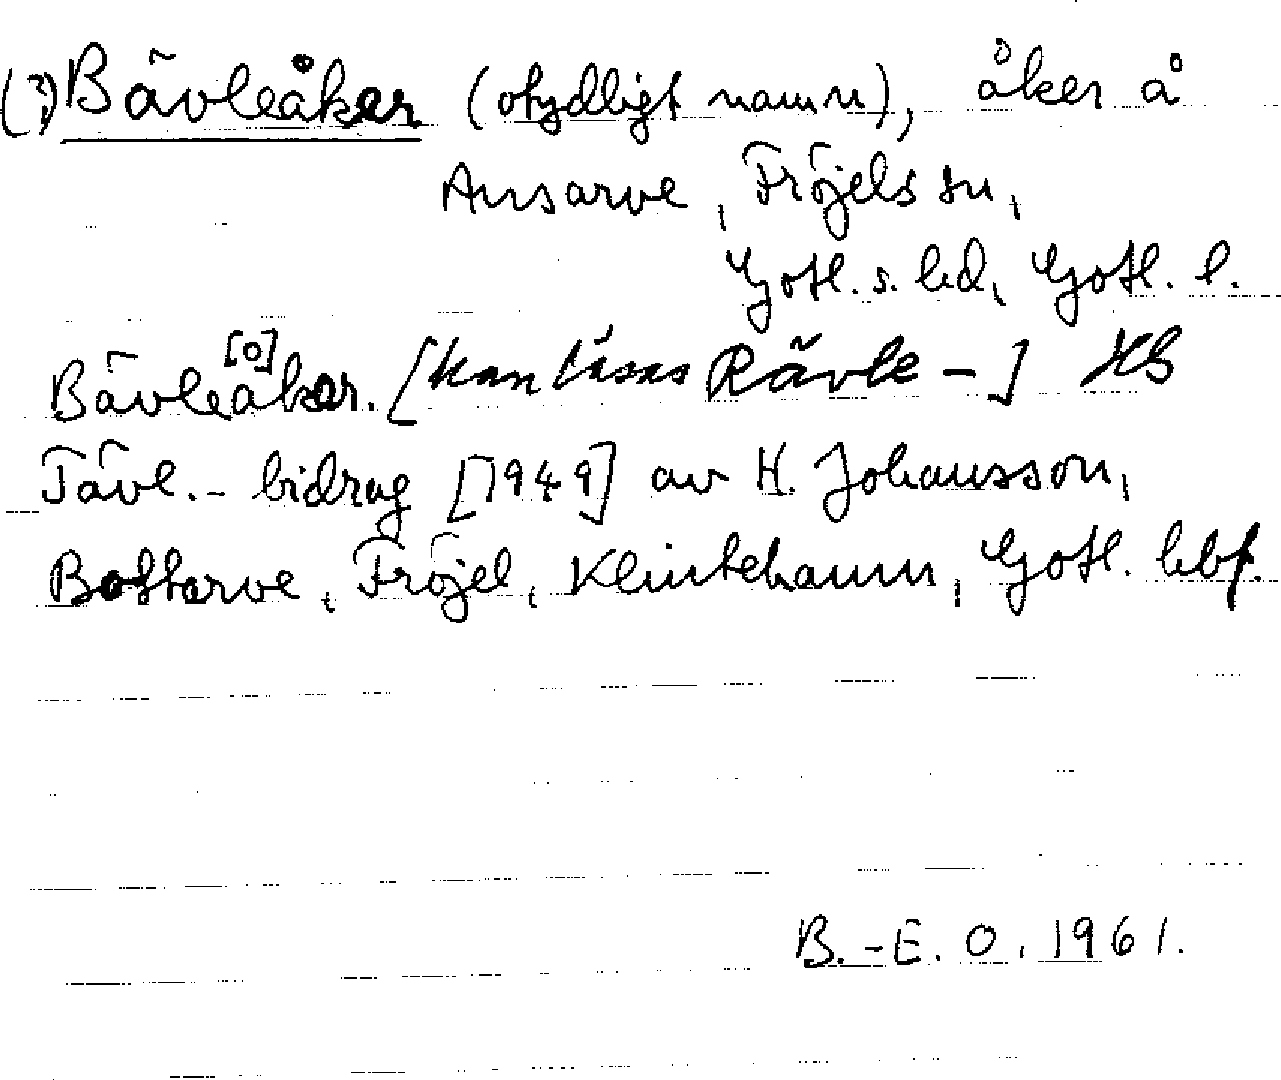 (?) Bävleåker (otydligt namn), åker å
Ansarve, Fröjels sn,
Gotl. s. hd, Gotl. l.
Bävleå[o]ker. [kan läsas Rävle-] HG
Tävl.- bidrag [1949] av H. Johansson,
Bottarve, Fröjel, Klintehamn, Gotl. hbf.
B.-E. O. 1961.